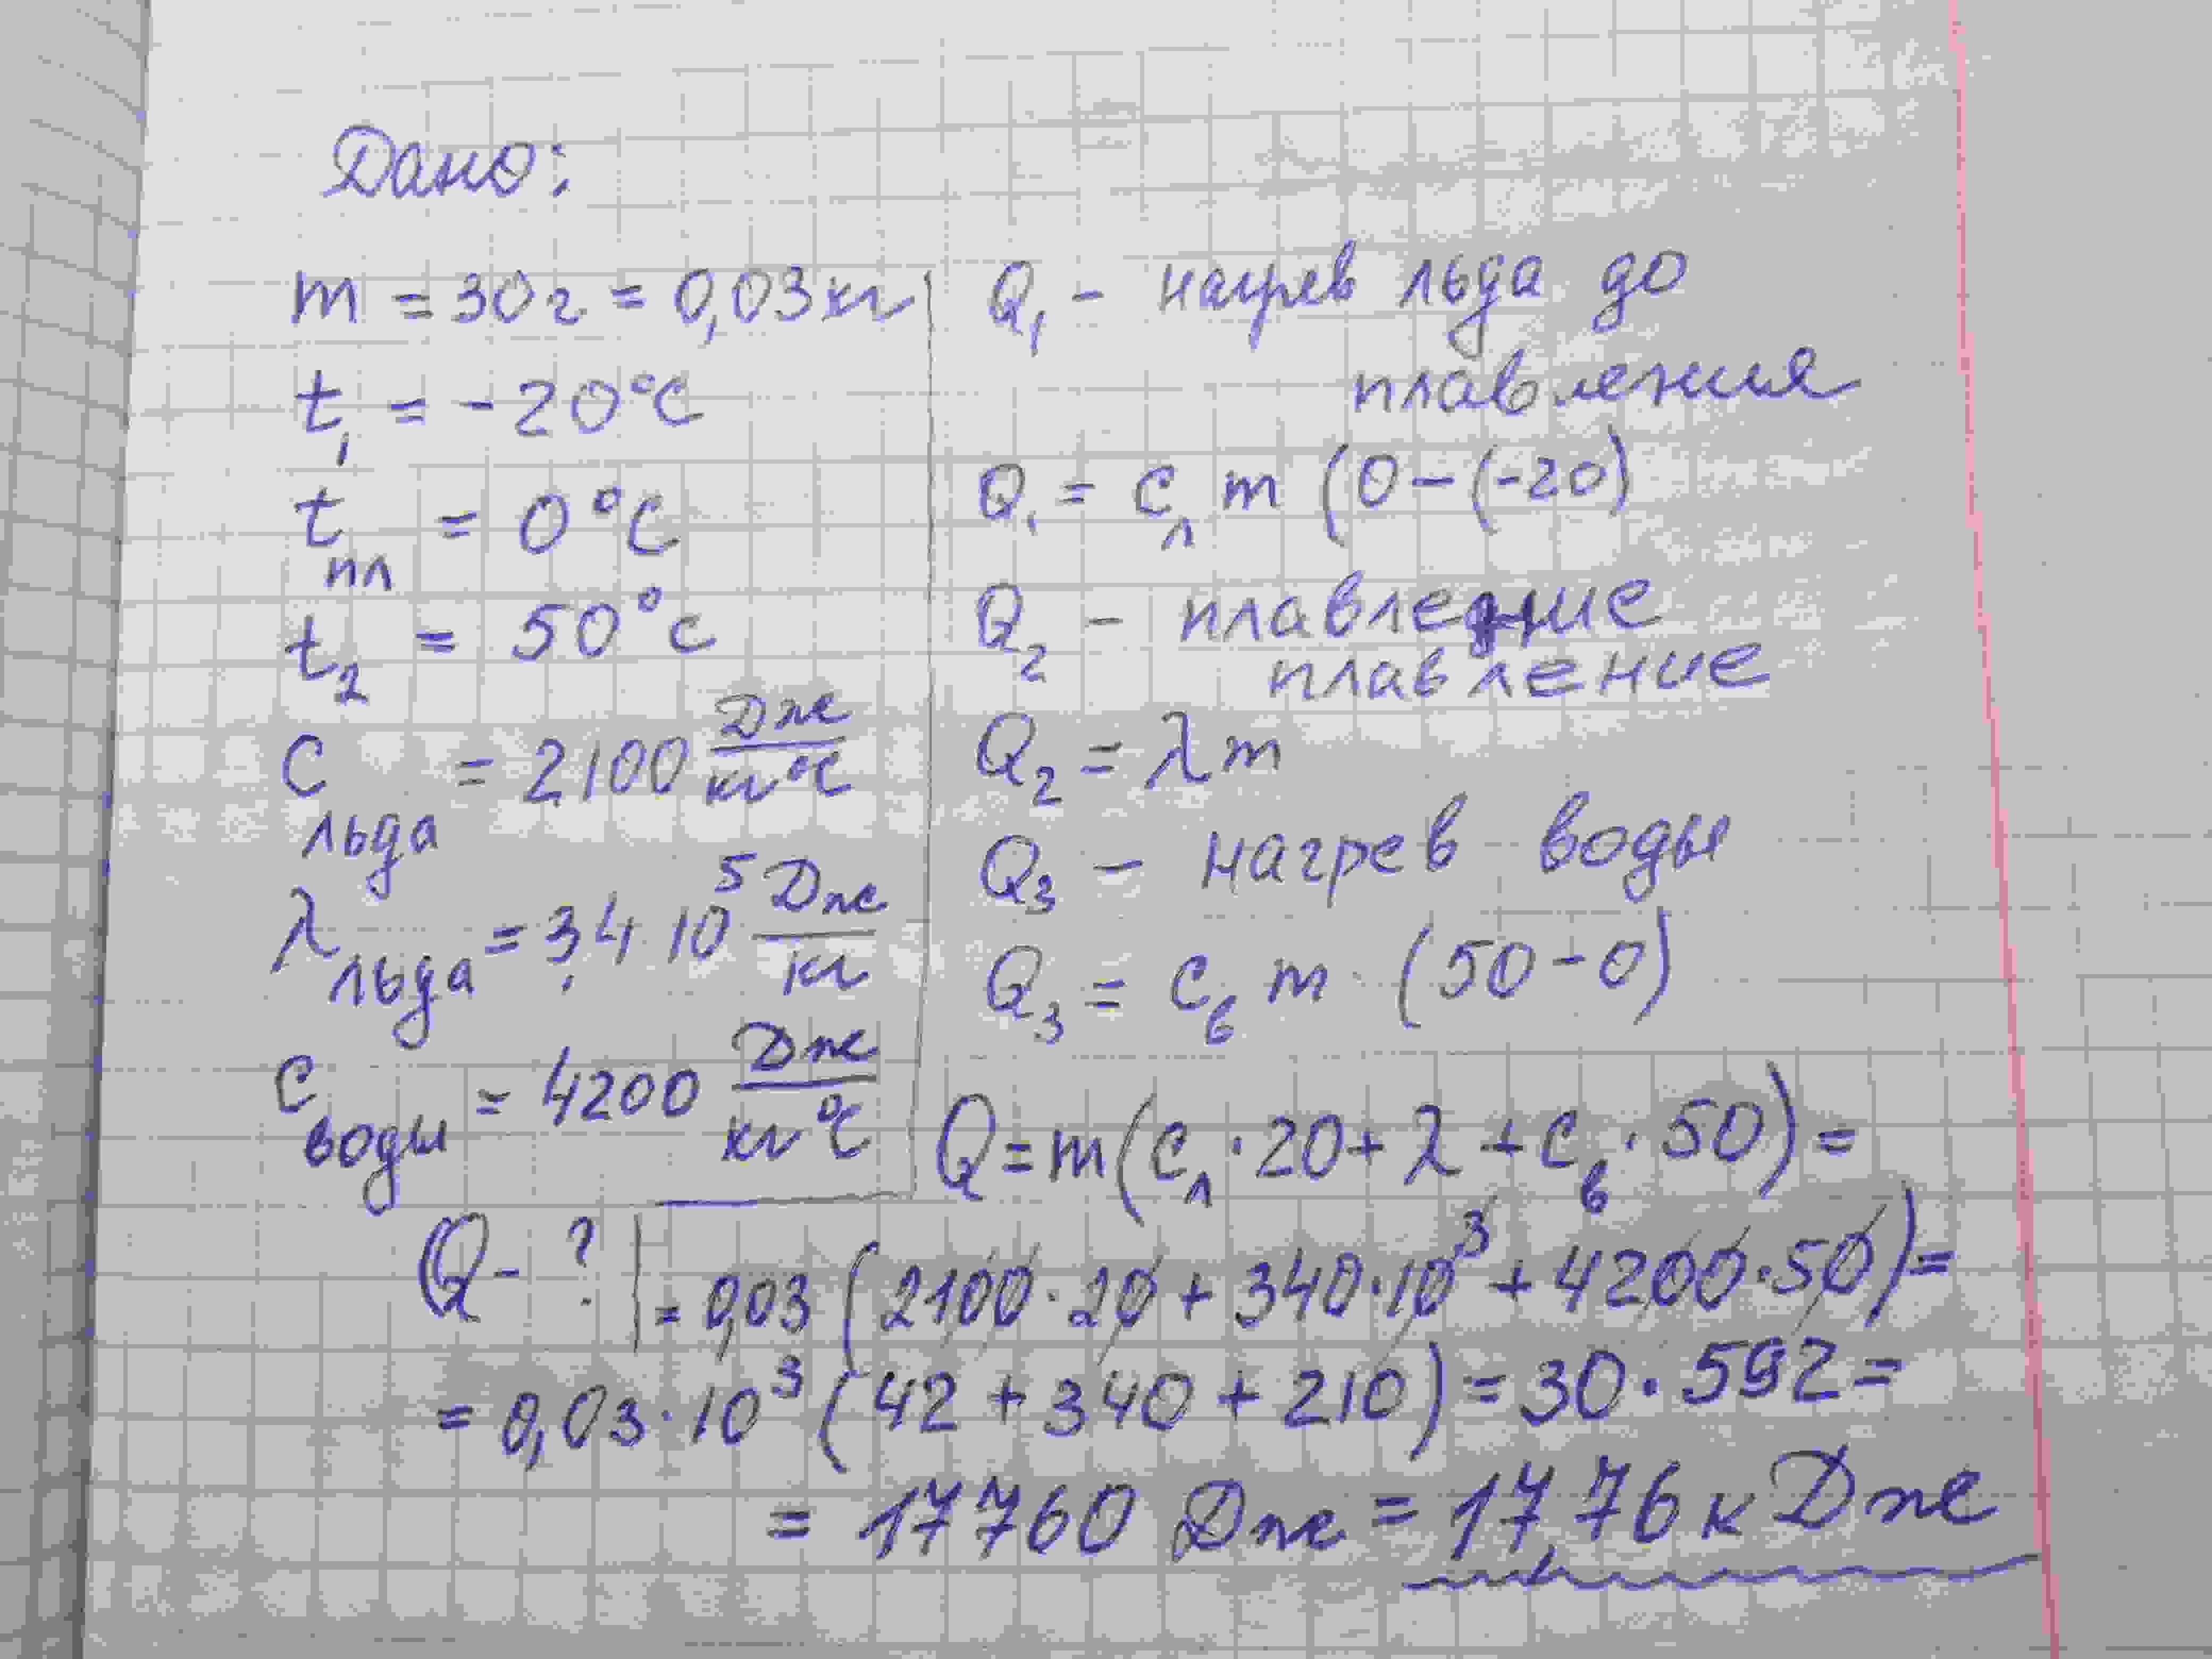 Дано:
m = 30 г = 0,03 кг
t₁ = -20°C
t пл = 0°C
t₂ = 50°C
C льда = 2100 Дж/кг°C
λ льда = 3,4 10⁵ Дж/кг
C воды = 4200 Дж/кг°C
Q - ?
Q₁ - нагрев льда до
плавления
Q₁ = Cл m (0 - (-20)
Q₂ - плавление
плавление
Q₂ = λ m
Q₃ - нагрев воды
Q₃ = Cв m · (50 - 0)
Q = m (Cл · 20 + λ + Cв · 50) =
= 0,03 (2100 · 20 + 340 · 10³ + 4200 · 50) =
= 0,03 · 10³ (42 + 340 + 210) = 30 · 592 =
= 17760 Дж = 17,76 кДж